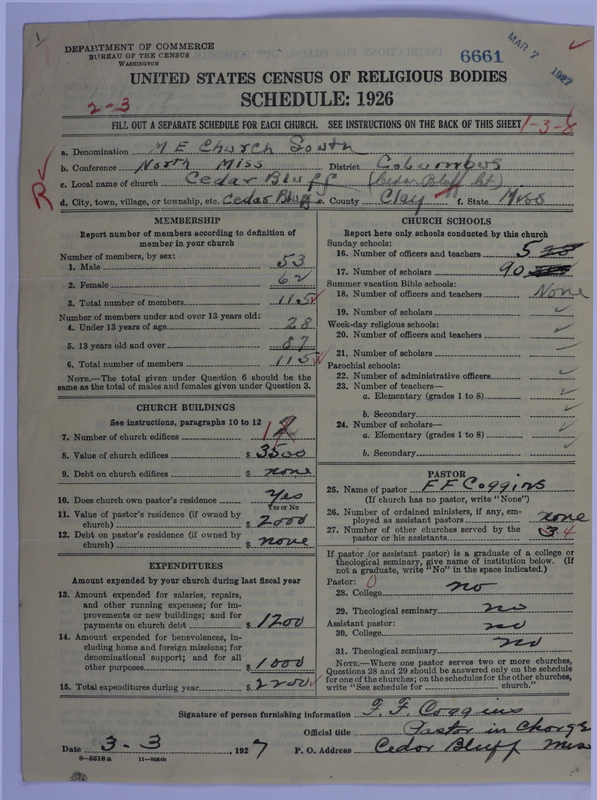 1
DEPARTMENT OF COMMERCE
BUREAU OF THE CENSUS
WASHINGTON
6661
MAR 7 1927
UNITED STATES CENSUS OF RELIGIOUS BODIES
SCHEDULE: 1926
2-3
FILL OUT A SEPARATE SCHEDULE FOR EACH CHURCH. SEE INSTRUCTIONS ON THE BACK OF THIS SHEET
1-3-8
a. Denomination M E Church South
b. Conference North Miss District Columbus
c. Local name of church Cedar Bluff (Cedar Bluff
R
d. City, town, village, or township, etc. Cedar Bluff e. County Clay f. State Miss
MEMBERSHIP
Report number of members according to definition of
member in your church
Number of members, by sex:
1. Male 53
2. Female 62
3. Total number of members 115
Number of members under and over 13 years old:
4. Under 13 years of age 28
5. 13 years old and over 87
6. Total number of members 115
NOTE.—The total given under Question 6 should be the
same as the total of males and females given under Question 3.
CHURCH BUILDINGS
See instructions, paragraphs 10 to 12
7. Number of church edifices 1
8. Value of church edifices $ 3500
9. Debt on church edifices $ none
10. Does church own pastor's residence Yes
Yes or No
11. Value of pastor's residence (if owned by
church) $ 2000
12. Debt on pastor's residence (if owned by
church) $ none
EXPENDITURES
Amount expended by your church during last fiscal year
13. Amount expended for salaries, repairs,
and other running expenses; for im-
provements or new buildings; and for
payments on church debt $ 1200
14. Amount expended for benevolences, in-
cluding home and foreign missions; for
denominational support; and for all
other purposes $ 1000
15. Total expenditures during year $ 2200
CHURCH SCHOOLS
Report here only schools conducted by this church
Sunday schools:
16. Number of officers and teachers 5
17. Number of scholars 90
Summer vacation Bible schools:
18. Number of officers and teachers None
19. Number of scholars
Week-day religious schools:
20. Number of officers and teachers
21. Number of scholars
Parochial schools:
22. Number of administrative officers
23. Number of teachers—
a. Elementary (grades 1 to 8)
b. Secondary
24. Number of scholars—
a. Elementary (grades 1 to 8)
b. Secondary
PASTOR
25. Name of pastor F F Coggins
(If church has no pastor, write "None")
26. Number of ordained ministers, if any, em-
ployed as assistant pastors none
27. Number of other churches served by the
pastor or his assistants 4
If pastor (or assistant pastor) is a graduate of a college or
theological seminary, give name of institution below. (If
not a graduate, write "No" in the space indicated.)
Pastor: 0
28. College no
29. Theological seminary no
Assistant pastor:
30. College no
31. Theological seminary no
NOTE.—Where one pastor serves two or more churches,
Questions 28 and 29 should be answered only on the schedule
for one of the churches; on the schedules for the other churches,
write "See schedule for church."
Signature of person furnishing information F. F. Coggins
Official title Pastor in Charge
Date 3-3, 1927 P. O. Address Cedar Bluff Miss
8-5518a 11-9024b